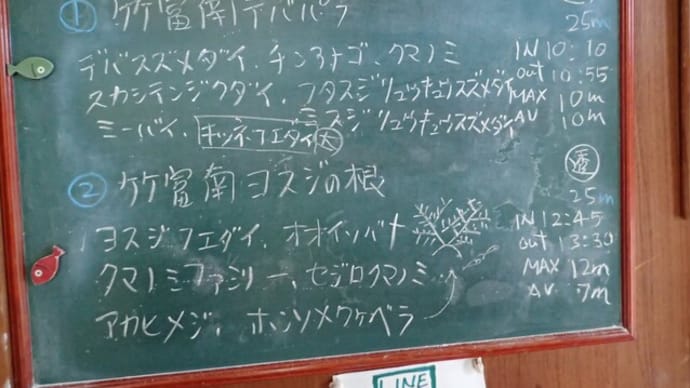 ① 竹富南デバパラ
25m
デバスズメダイ、チンアナゴ、クマノミ
IN 10:10
スカシテンジクダイ、フタスジリュウキュウスズメダイ
out 10:55
ミスジリュウキュウスズメダイ
MAX 10m
ミーバイ、キツネフエダイ 大
AV 10m
② 竹富南ヨスジの根
透
25m
ヨスジフエダイ、オオイソバナ
IN 12:45
クマノミファミリー、セジロクマノミ
out 13:30
MAX 12m
アカヒメジ、ホンソメワケベラ
AV 7m
LINE